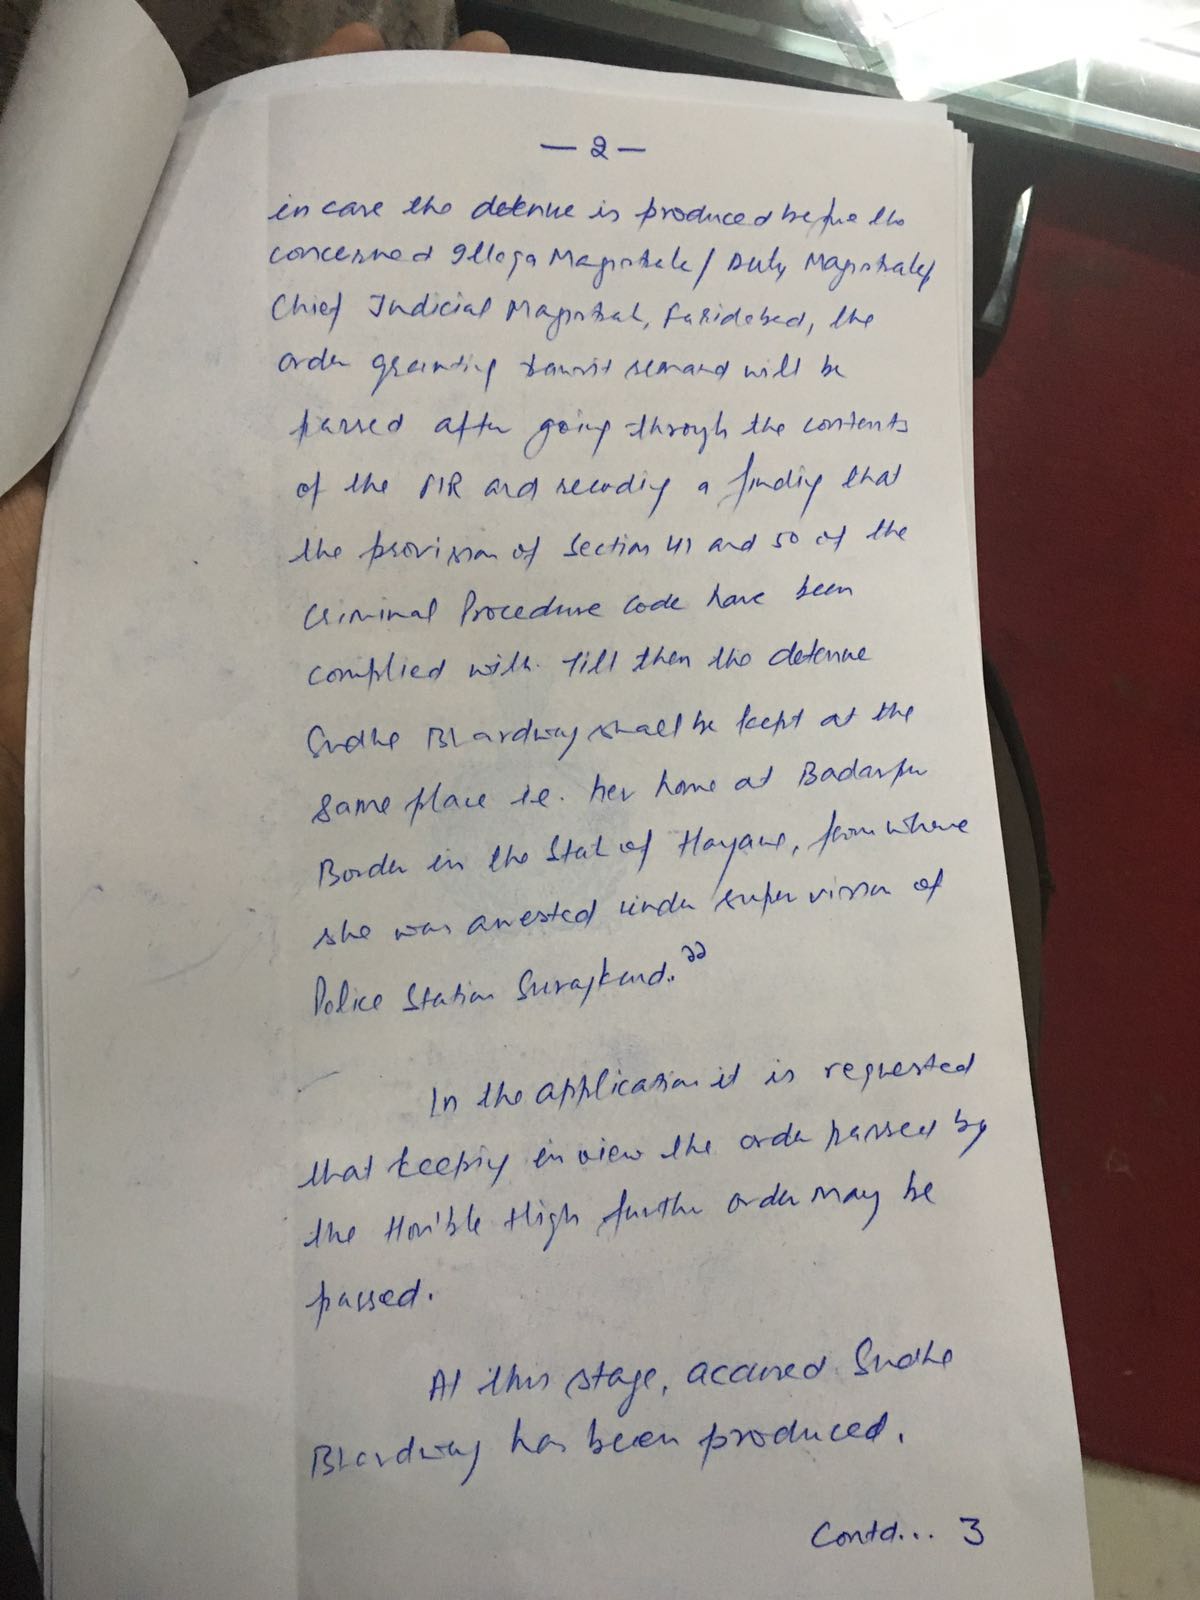 — 2 —
in case the detenue is produced before the
concerned Illaqa Magistrate/ Duty Magistrate/
Chief Judicial Magistrate, Faridabad, the
order granting transit remand will be
passed after going through the contents
of the FIR and recording a finding that
the provision of Section 41 and 50 of the
Criminal Procedure Code have been
complied with. Till then the detenue
Sudha Bhardwaj shall be kept at the
same place i.e. her home at Badarpur
Border in the State of Haryana, from where
she was arrested under supervision of
Police Station Surajkund."
In the application it is requested
that keeping in view the order passed by
the Hon'ble High further order may be
passed.
At this stage, accused Sudha
Bhardwaj has been produced.
Contd... 3